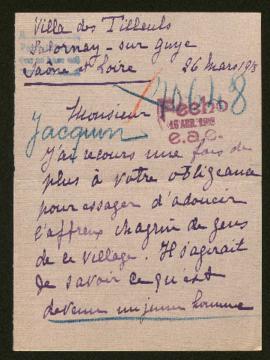 Villa des Tilleuls
Salornay-sur Guye
Saône et Loire 26 mars 1918
Monsieur
Fecho
Jacquin
e.a.c.
J'ai recours une fois de
plus à votre obligeance
pour essayer d'adoucir
l'affreux chagrin de gens
de ce village. Il s'agirait
de savoir ce qu'est
devenu un jeune homme